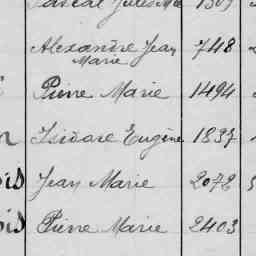 Pascal Jules Mie 1309
Alexandre Jean Marie 748
Pierre Marie 1494
Isidore Eugène 1837
Jean Marie 2072
Pierre Marie 2403